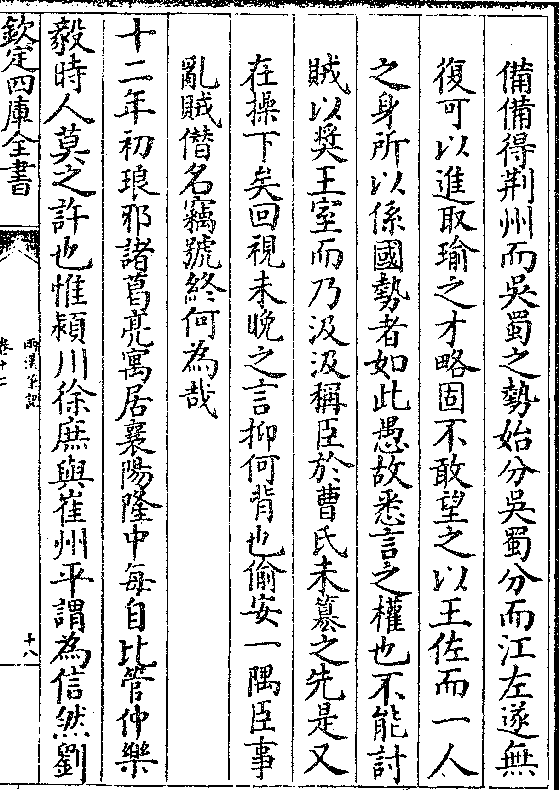 備備得荆州而吳蜀之勢始分吳蜀分而江左遂無
復可以進取瑜之才略固不敢望之以王佐而一人
之身所以係國勢者如此愚故悉言之權也不能討
賊以奨王室而乃汲汲稱臣於曹氏未簒之先是又
在操下矣回視未晚之言抑何背也偷安一隅臣事
亂賊僣名竊號終何為哉
十二年初琅邪諸葛亮寓居襄陽隆中每自比管仲樂
毅時人莫之許也惟潁川徐庶與崔州平謂為信然劉
欽定四庫全書
兩漢筆記
卷十二
十八